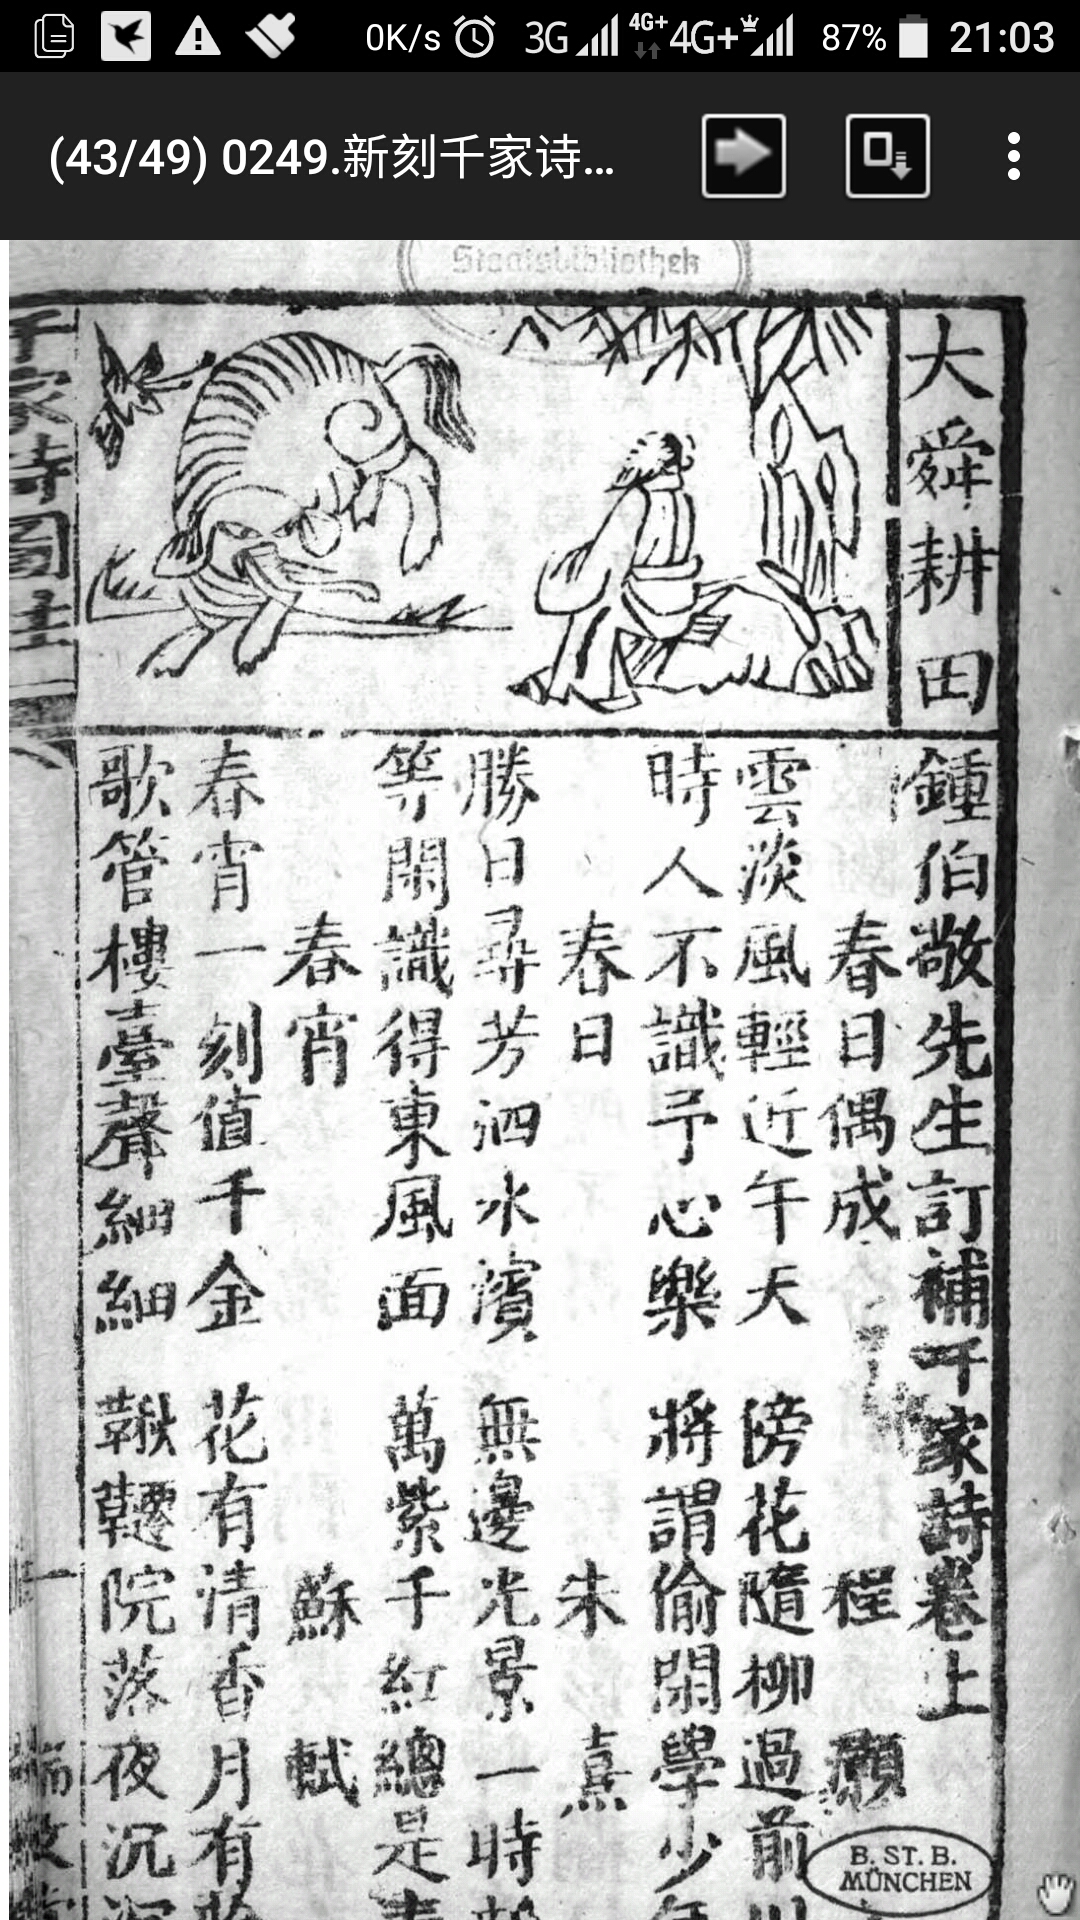 0K/s 3G 4G+ 4G+ 87% 21:03
(43/49) 0249.新刻千家诗...
Staatsbibliothek
大舜耕田
鍾伯敬先生訂補千家詩卷上
春日偶成 程顥
雲淡風輕近午天 傍花隨柳過前川
時人不識予心樂 將謂偷閑學少年
春日 朱熹
勝日尋芳泗水濱 無邊光景一時新
等閑識得東風面 萬紫千紅總是春
春宵 蘇軾
春宵一刻值千金 花有清香月有陰
歌管樓臺聲細細 鞦韆院落夜沉沉
千家詩圖註
一
B. ST. B.
MÜNCHEN